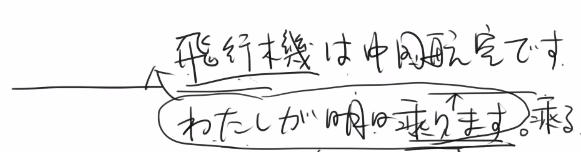 飛行機は中国航空です
わたしが明日乗ります。乗る